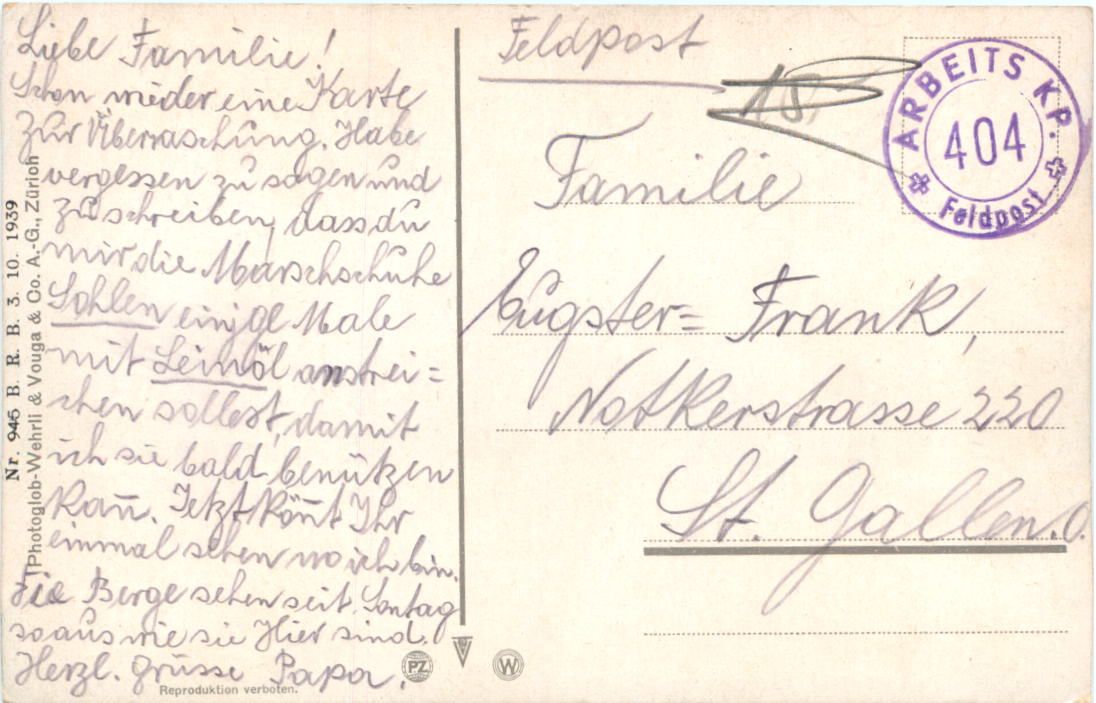 Liebe Familie!
Schon wieder eine Karte
zur Überraschung. Habe
vergessen zu sagen und
zu schreiben, dass du
mir die Marschschuhe
Sohlen einige Male
mit Leinöl anstrei=
chen sollest, damit
ich sie bald benützen
kan̄. Jetzt kön̄t Ihr
einmal sehen wo ich bin.
Die Berge sehen seit Sontag
so aus wie sie Hier sind.
Herzl. Grüsse Papa.
Nr. 945 B. R. B. 3. 10. 1939
Photoglob-Wehrli & Vouga & Co. A.-G., Zürich
Reproduktion verboten.
PZ
W
Feldpost
ARBEITS KP.
404
Feldpost
Familie
Eugster= Frank,
Notkerstrasse 220
St. Gallen.O.